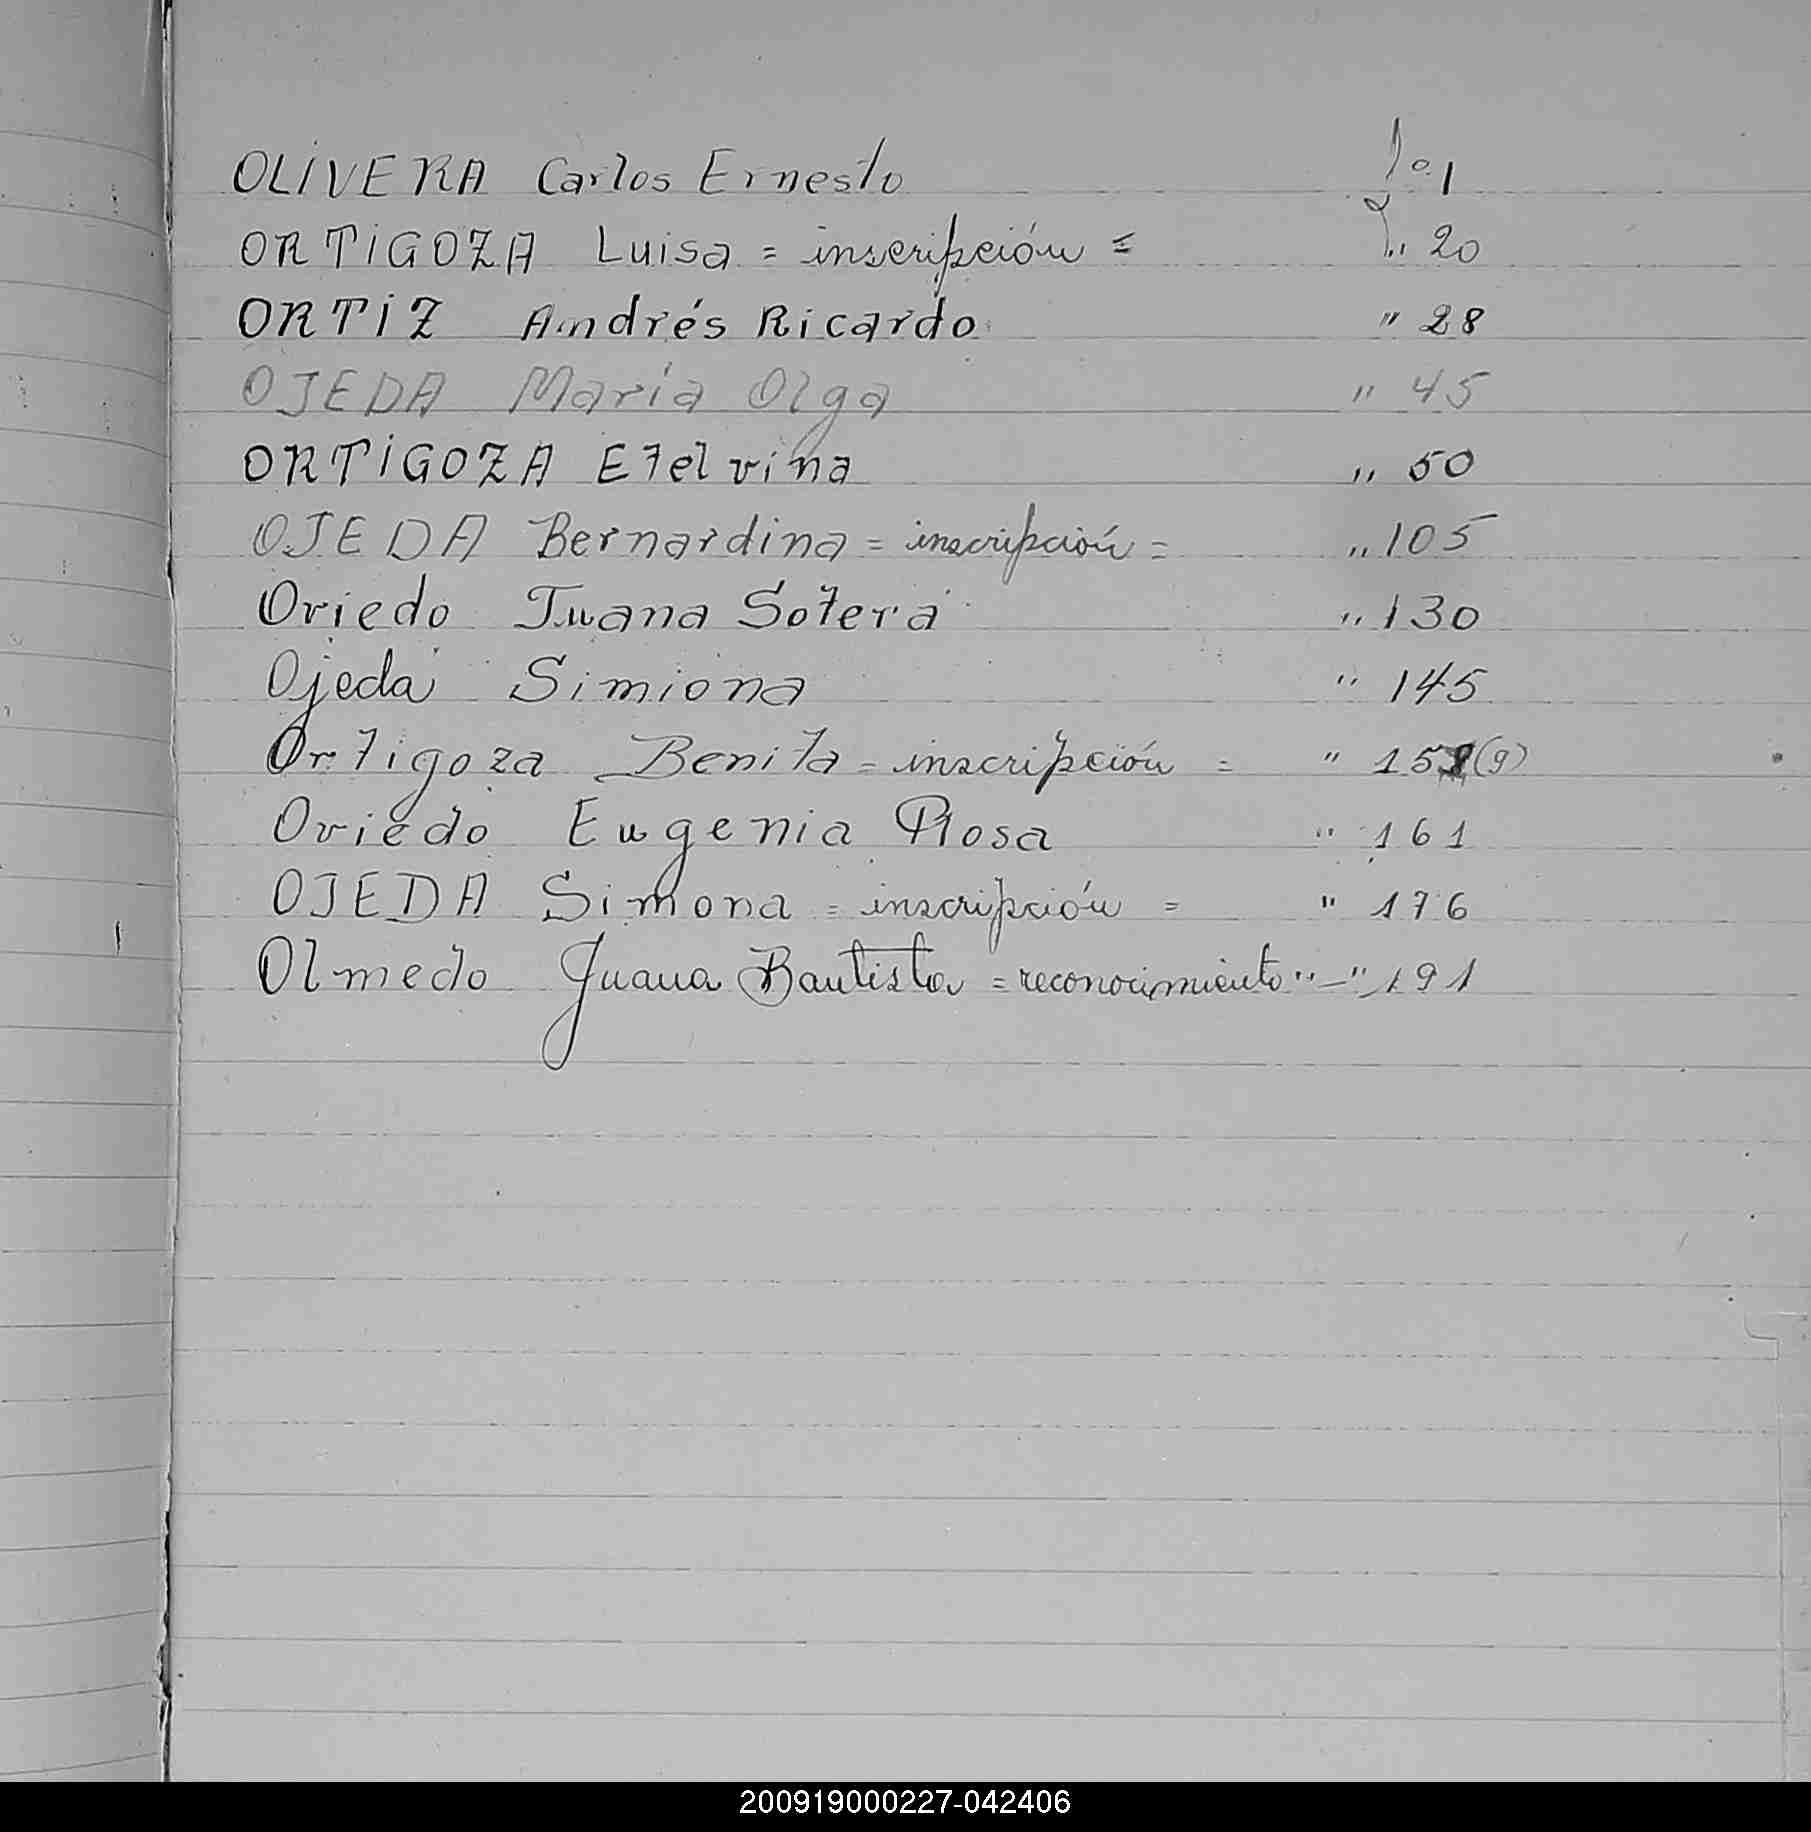 OLIVERA Carlos Ernesto fo 1
ORTIGOZA Luisa = inscripción = " 20
ORTIZ Andrés Ricardo " 28
OJEDA María Olga " 45
ORTIGOZA Etelvina " 50
OJEDA Bernardina = inscripción = " 105
Oviedo Juana Sotera " 130
Ojeda Simiona " 145
Ortigoza Benita = inscripción = " 159 (9)
Oviedo Eugenia Rosa " 161
OJEDA Simona = inscripción = " 176
Olmedo Juana Bautista = reconocimiento " — " 191
200919000227-042406